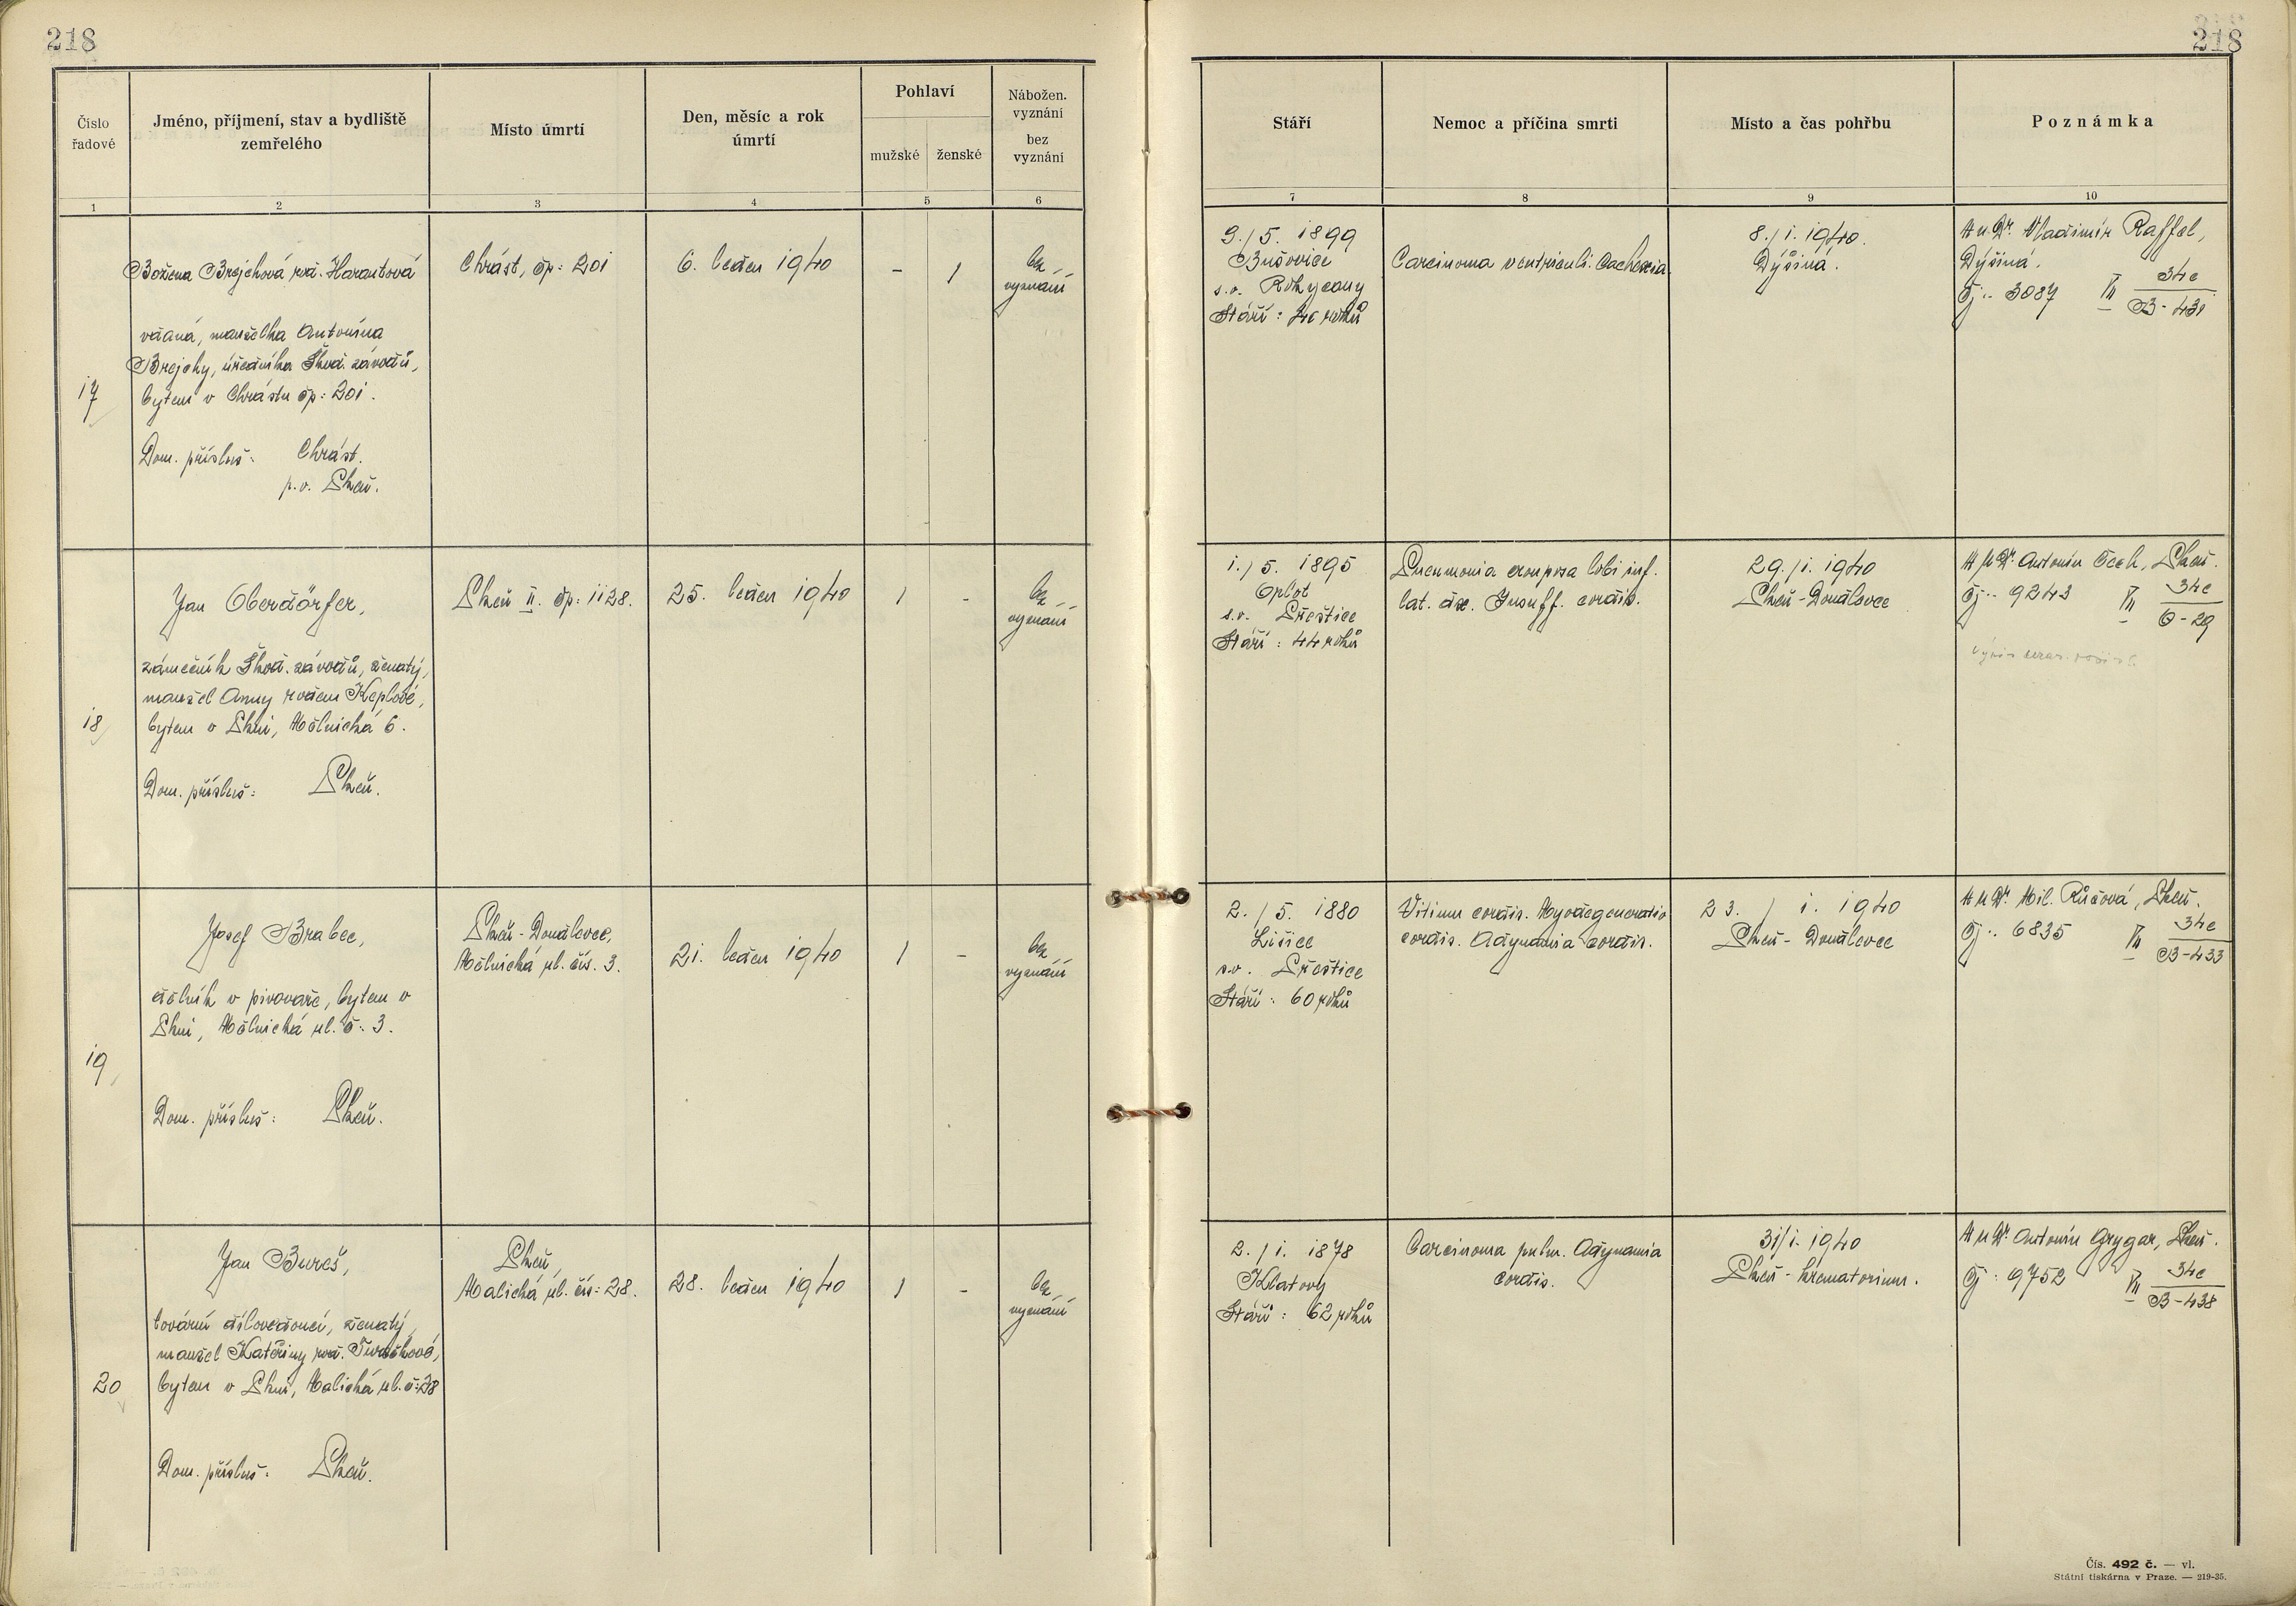 218
218
Číslo
řadové
Jméno, příjmení, stav a bydliště
zemřelého
Místo úmrtí
Den, měsíc a rok
úmrtí
Pohlaví
mužské
ženské
Nábožen.
vyznání
bez
vyznání
Stáří
Nemoc a příčina smrti
Místo a čas pohřbu
Poznámka
1
2
3
4
5
6
7
8
9
10
17
Božena Brejchová roz. Harantová
vdaná, manželka Antonína
Brejchy, úředníka Škod. závodů,
bytem v Chrástu čp: 201.
Dom. přísluš: Chrást.
p.o. Plzeň.
Chrást, čp: 201
6. leden 1940
-
1
bez
vyznání
9./5. 1899
Bušovice
s.o. Rokycany
Stáří: 40 roků
Carcinoma ventriculi. Cachexia
8./1. 1940.
Dýšiná.
MUDr. Vladimír Raffel,
Dýšiná.
Čj.: 3087 34c
B-431
18
Jan Oberdörfer,
zámečník Škod. závodů, ženatý,
manžel Anny rozen Keplové,
bytem v Plzni, Mělnická 6.
Dom. přísluš: Plzeň.
Plzeň II. čp: 1128.
25. leden 1940
1
-
bez
vyznání
1./5. 1895
Oplot
s.o. Přeštice
Stáří: 44 roků
Pneumonia crouposa lobi inf.
lat. dx. Insuff. cordis.
29./1. 1940
Plzeň-Doudlevce
MUDr. Antonín Čech, Plzeň.
Čj.: 9243 34c
O-29
19
Josef Brabec,
dělník v pivovaře, bytem v
Plzni, Mělnická ul. č: 3.
Dom. přísluš: Plzeň.
Plzeň-Doudlevce,
Mělnická ul. čís. 3.
21. leden 1940
1
-
bez
vyznání
2./5. 1880
Lišice
s.o. Přeštice
Stáří: 60 roků
Vitium cordis. Myodegeneratio
cordis. Adynamia cordis.
23. / 1. 1940
Plzeň-Doudlevce
MUDr. Mil. Růžová, Plzeň.
Čj.: 6835 34c
B-433
20
Jan Bureš,
tovární dílovedoucí, ženatý,
manžel Kateřiny roz. Turečkové,
bytem v Plzni, Malická ul. č: 28
Dom. přísluš: Plzeň.
Plzeň,
Malická ul. čís: 28.
28. leden 1940
1
-
bez
vyznání
2./1. 1878
Klatovy
Stáří: 62 roků
Carcinoma pulm. Adynamia
cordis.
31/1. 1940
Plzeň-krematorium.
MUDr. Antonín Grygar, Plzeň.
Čj: 9752 34c
B-438
Čís. 492 č. — vl.
Státní tiskárna v Praze. — 219-35.